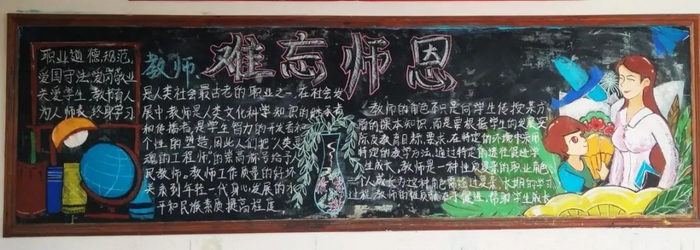 难忘师恩
职业道德规范,
爱国守法、爱岗敬业
关爱学生、教书育人
为人师表、终身学习
教师
是人类社会最古老的职业之一,在社会发
展中教师是人类文化科学知识的继承者
和传播者,是学生智力的开发者和
个性的塑造者,因此人们把"人类灵
魂的工程师"的崇高称号给予人
民教师。教师工作质量的好坏
关系到年轻一代身心发展的水
平和民族素质提高程度,
教师的角色不只是向学生传授某方
面的课本知识,而是要根据学生的发展实
际及教育目标、要求,在特定的环境中采用
特定的教学方法,通过特定的途径促进学
生成长,教师是一种性质复杂的职业角色